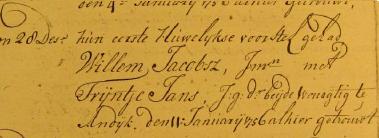 den 4den Januarij 1786 alhier getrouwt,
m 28 Decr hun eerste Huwelykse voorstel gehad
Willem Jacobsz, Jmn met
Trijntje Jans, J.g. dr beyde wonagtig te
Andijk, den 11 Januarij 1786 alhier getrouwt